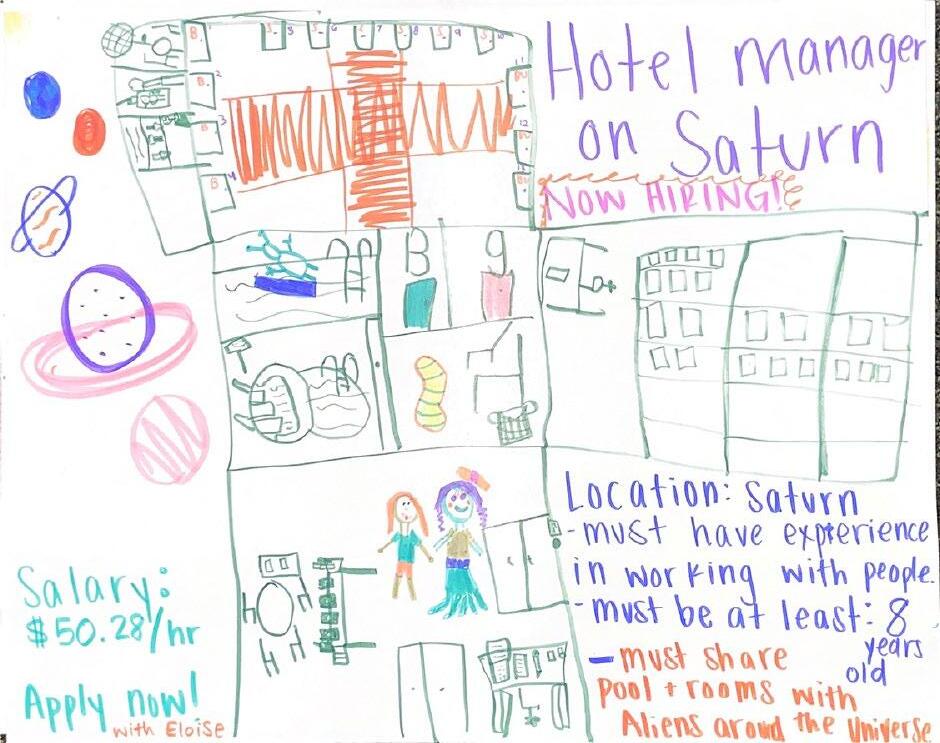 Hotel manager
on Saturn
NOW HIRING!
B 9
Location: Saturn
-must have experience
in working with people.
-must be at least: 8
years
old
-must share
pool + rooms with
Aliens around the Universe
Salary:
$50.28/hr
Apply now!
with EloiSe